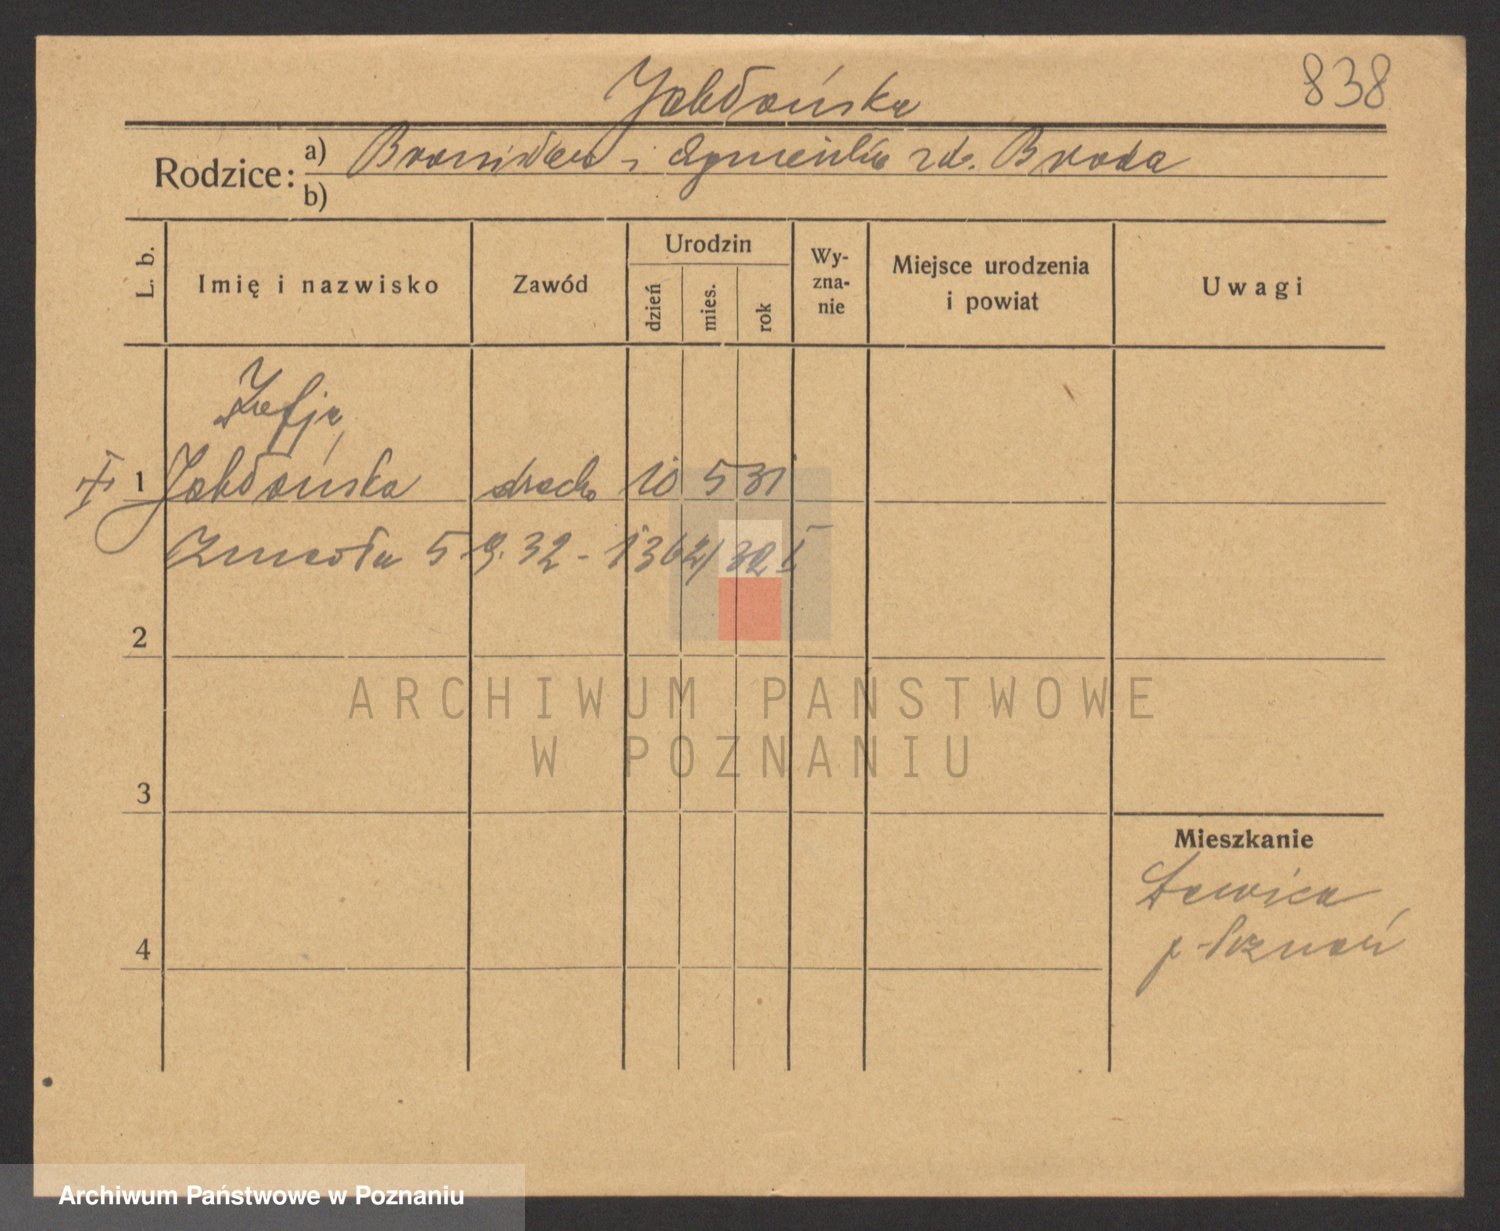 838
Jabłońska
Rodzice: a) Bronisław i Agnieszka zd. Broda
b)
L. b.
Imię i nazwisko
Zawód
Urodzin
dzień
mies.
rok
Wy-
zna-
nie
Miejsce urodzenia
i powiat
Uwagi
Zofja
1 Jabłońska dziecko 10 5 31
zmarła 5.9.32 - 1362/32 I
2
ARCHIWUM PAŃSTWOWE
W POZNANIU
3
Mieszkanie
Ławica
p. Poznań
4
Archiwum Państwowe w Poznaniu